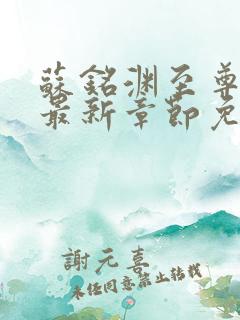 蘇銘渊至尊
最新章節免
謝元喜
未经同意禁止转载